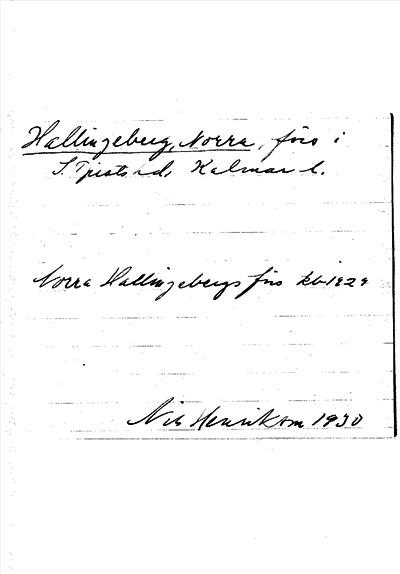 Hallingeberg, Norra, förs i
S. Tjusts hd, Kalmar l.
Norra Hallingebergs förs kb 1929
Nils Henriksson 1930